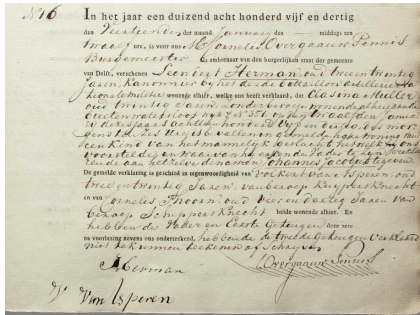 No 16
In het jaar een duizend acht honderd vijf en dertig
den Veertienden der maand Januarij des middags ten
twaalf ure, is voor ons Cornelis Overgaauw Pennis
Burgemeester Ambtenaar van den burgerlijken staat der gemeente
van Delft, verschenen Leendert Herman, oud twee en twintig
Jaren, Kanonnier bij het Bataillon Artillerie Na
tionale Militie wonende alhier, welke ons heeft verklaard, dat Clasina Muller
oud twintig Jaren, zonder beroep, wonende alhier
op den twaalfden Januarij
dezes Jaars achttien honderd vijf en dertig, des mor
gens ten zes ure, is bevallen
een kind van het mannelijk geslacht, hetwelk hij ons
voorstelde, en waar van hij erkende vader te zijn, verkla
rende aan hetzelve de namen Johannis Jacobus te geven
De gemelde verklaring is geschied in tegenwoordigheid van Volkert van Isperen, oud
twee en twintig Jaren, van beroep Kuypers Knecht
en van Cornelis Thoorn, oud vier en dertig Jaren van
beroep Schuppers Knecht beide wonende alhier. En
hebben de Vader en Eerste Getuigen deze acte
na voorlezing nevens ons onderteekend, hebbende de tweede Getuigen Verklaard
niet te kunnen teekenen of Schrijven
L Herman
C Overgaauw Pennis
V. Van Isperen